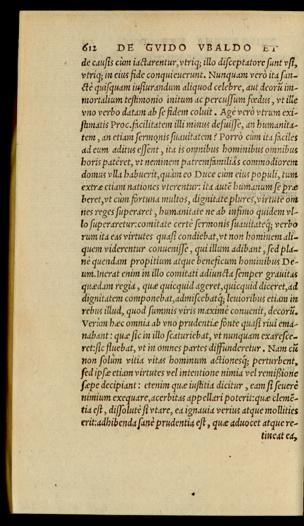 612 DE GVIDO VBALDO ET
de causis cùm iactarentur, vtriq; illo disceptatore sunt vsi,
vtriq; in eius fide conquieuerunt. Nunquam verò ita san-
ctè quisquam iusiurandum aliquod celebre, aut deorũ im-
mortalium testimonio initum ac percussum fœdus, vt ille
vno verbo datam ab se fidem coluit. Age verò vtrum exi-
stimatis Proc. facilitatem illi minus defuisse, an humanita-
tem, an etiam sermonis suauitatem? Porrò cùm ita faciles
ad eum aditus essent, ita is omnibus hominibus omnibus
horis patéret, vt neminem patremfamiliâs commodiorem
domus vlla habuerit, quàm eo Duce cùm eius populi, tum
extræ etiam nationes vterentur: ita autẽ humanum se præ
beret, vt cùm fortuna multos, dignitate plures, virtute om
nes reges superaret, humanitate ne ab infimo quidem vl-
lo superaretur: comitate certè sermonis suauitateq́; verbo
rum ita eas virtutes quasi condiebat, vt non hominem ali-
quem viderentur conuenisse, qui illum adibant, sed pla-
nè quendam propitium atque beneficum hominibus De-
um. Inerat enim in illo comitati adiuncta semper grauitas
quædam regia, quæ quicquid ageret, quicquid diceret, ad
dignitatem componebat, admiscebatq́; leuioribus etiam in
rebus illud, quod summis viris maximè conuenit, decorũ.
Verùm hæc omnia ab vno prudentiæ fonte quasi riui ema-
nabant: quæ sic in illo scaturiebat, vt nunquam exaresce-
ret: sic fluebat, vt in omnes partes diffunderetur. Nam cũ
non solùm vitia vitas hominum actionesq́; perturbent,
sed ipsæ etiam virtutes vel intentione nimia vel remissione
sæpe decipiant: etenim quæ iustitia dicitur, eam si seuerè
nimium exequare, acerbitas appellari poterit: quæ clemẽ-
tia est, dissolutè si vtare, ea ignauia verius atque mollities
erit: adhibenda sanè prudentia est, quæ aduocet atque re-
tineat ea,